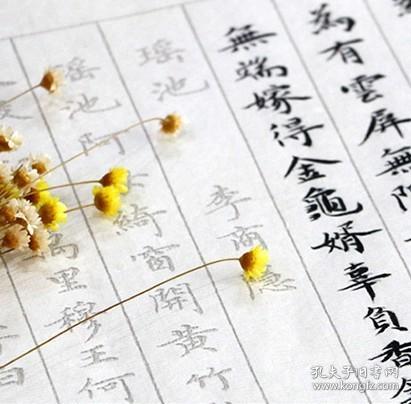 為有雲屏無
無端嫁得金龜婿辜負香
瑤池 李商隱
瑤池阿母綺窗開黃竹
萬里穆王何
孔夫子旧书网
www.kongfz.com